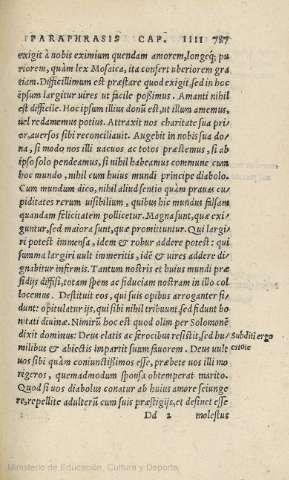 PARAPHRASIS CAP. IIII 787
exigit à nobis eximium quendam amorem, longeq; pu/
riorem, quàm lex Mosaica, ita confert vberiorem gra/
tiam. Difficillimum est præstare quod exigit, sed in hoc
ipsum largitur uires ut facile poßimus. Amanti nihil
est difficile. Hoc ipsum illius donū est, ut illum amemus,
uel redamemus potius. Attraxit nos charitate sua pri/
or, auersos sibi reconciliauit. Augebit in nobis sua do/
na, si modo nos illi uacuos ac totos præstemus, si ab
ipso solo pendeamus, si nihil habeamus commune cum
hoc mundo, nihil cum huius mundi principe diabolo.
Cum mundum dico, nihil aliud sentio quàm prauas cu/
piditates rerum uisibilium, quibus hic mundus falsam
quandam felicitatem pollicetur. Magna sunt, quæ exi/
guntur, sed maiora sunt, quæ promittuntur. Qui largi/
ri potest immensa, idem & robur addere potest: qui
summa largiri uult immeritis, idē & uires addere di/
gnabitur infirmis. Tantum nostris et huius mundi præ
sidijs diffisi, totam spem ac fiduciam nostram in illo col
locemus. Destituit eos, qui suis opibus arroganter fi/
dunt: opitulatur ijs, qui sibi nihil tribuunt, sed fidunt bo
nitati diuinæ. Nimirū hoc est quod olim per Solomonē
dixit dominus: Deus elatis ac ferocibus resistit, sed hu/
Subditi ergo
millibus & abiectis impartit suum fauorem. Deus uult
estote
uos sibi quàm coniunctißimos esse, præbete uos illi mo
rigeros, quemadmodum sponsa obtemperat marito.
Quod si uos diabolus conatur ab huius amore seiunge
re, repellite adulterū cum suis præstigijs, et desinet esse
Dd 2 molestus
Ministerio de Educación, Cultura y Deporte